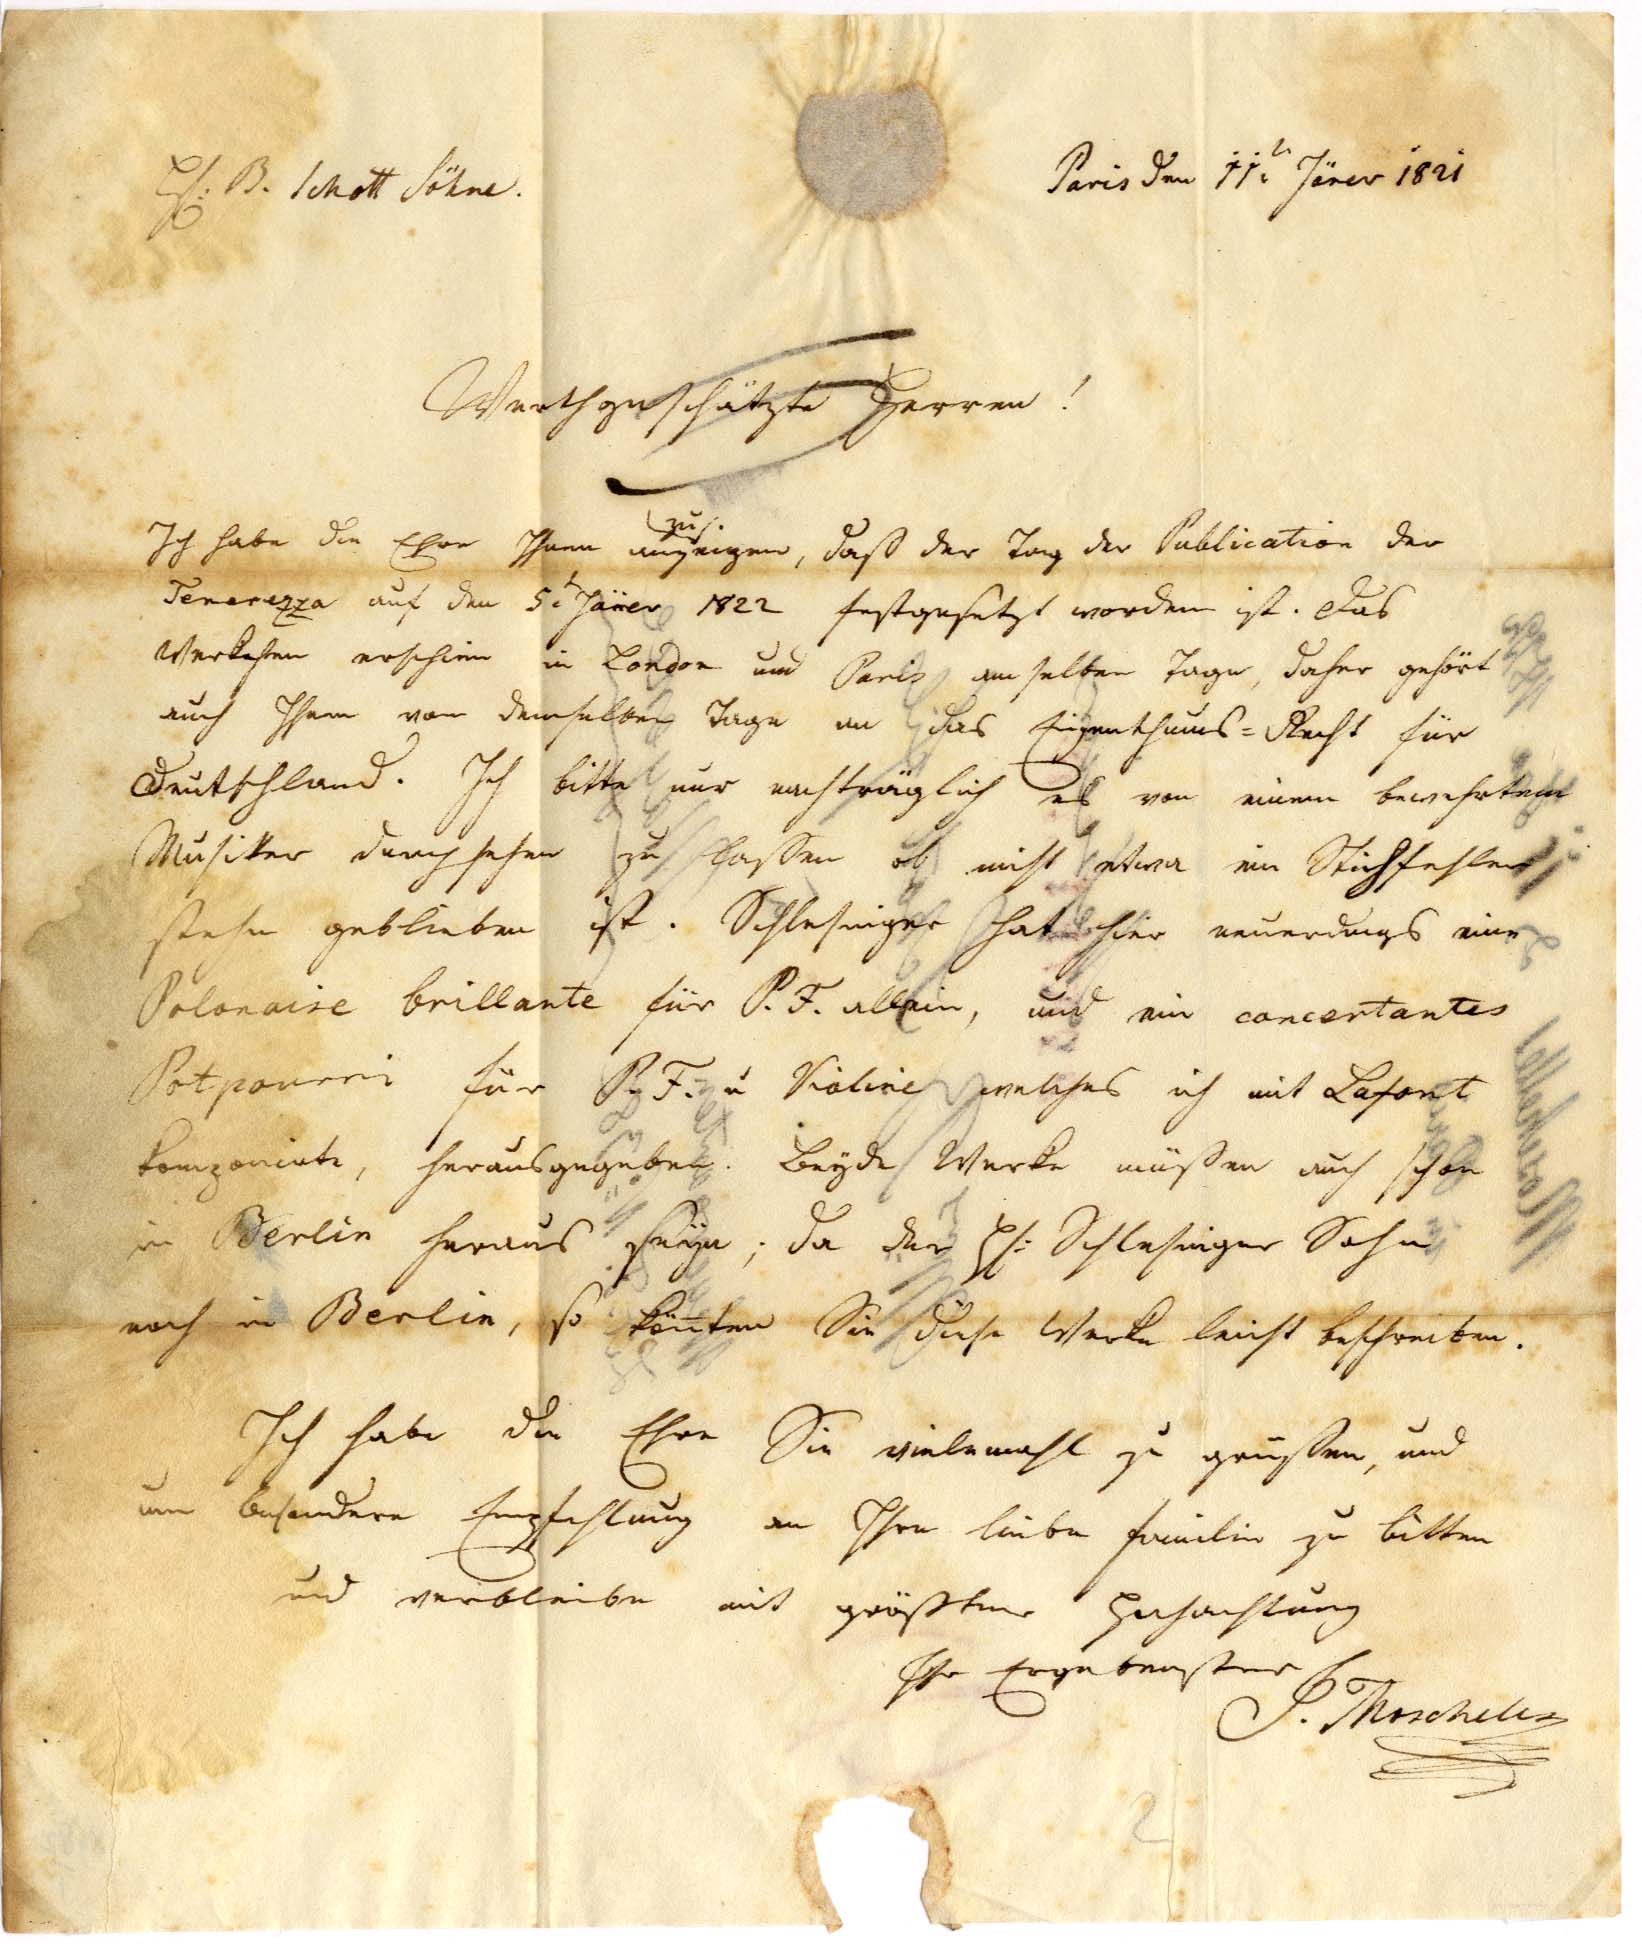 H: B. Schott Söhne.
Paris den 11t Jäner 1821
Werthgeschätzte Herren!
Ich habe die Ehre Ihnen anzeigen, daß der Tag der Publication der
Tenerezza auf den 5t Jäner 1822 festgesetzt worden ist. Das
Werkchen erschien in London und Paris am selben Tage, daher gehört
auch Ihnen von demselben Tage an das Eigenthums=Recht für
Deutschland. Ich bitte nur nachträglich es von einem bewehrten
Musiker durchsehen zu lassen ob nicht etwa ein Stichfehler
stehn geblieben ist. Schlesinger hat hier neuerdings eine
Polonaise brillante für P. F. allein, und ein concertantes
Potpourri für P. F. u Violine welches ich mit Lafont
komponirte, herausgegeben. Beyde Werke müßen auch schon
in Berlin heraus seyn; da der H: Schlesinger Sohn
noch in Berlin, so könnten Sie diese Werke leicht beschreiben.
Ich habe die Ehre Sie vielemahl zu grüßen, und
um besondere Empfehlung an Ihre liebe Familie zu bitten
und verbleibe mit größter Hochachtung
Ihr Ergebenster
J. Moscheles
2